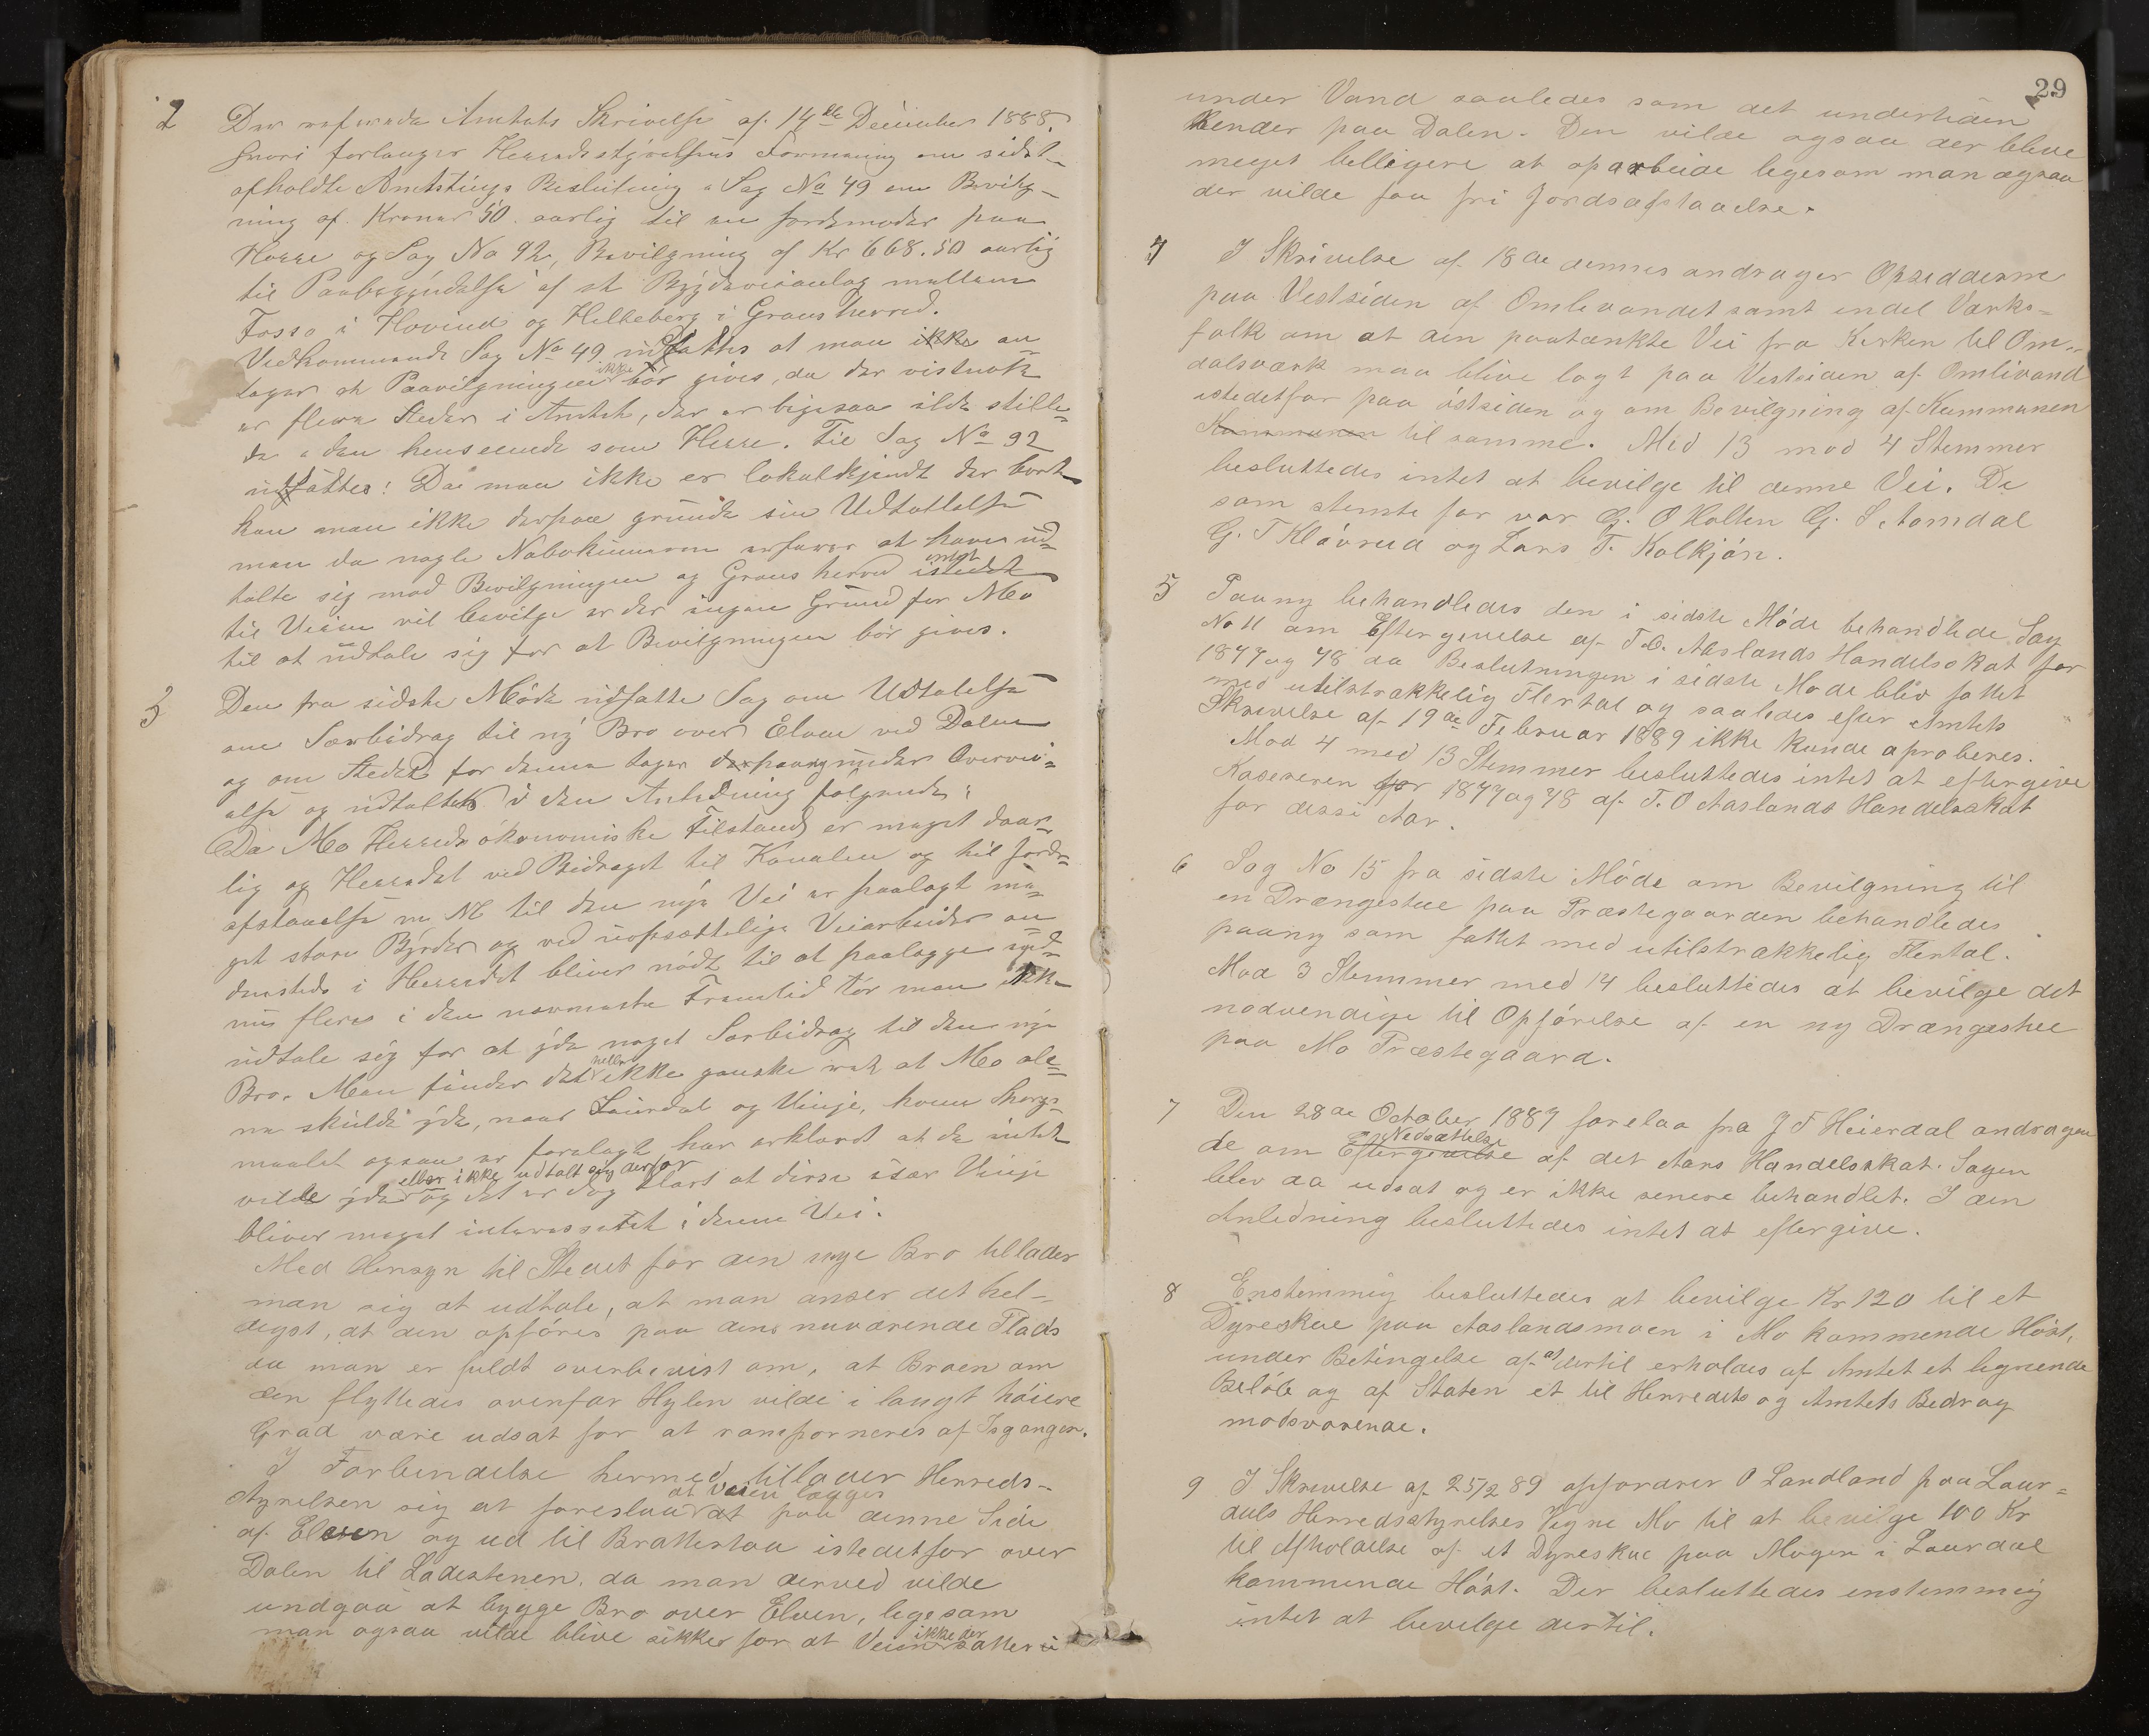 2 Der refererede Amtets Skrivelse af 14de December 1888,
hvori forlanges Herredsstyrelsens Formening om sidst
afholdte Amtstings Beslutning i Sag No 49 om Bevilg-
ning af Kroner 50 aarlig til en Jordemoder paa
og Sag No 92, Bevilgning af Kr 668.50 aarlig
til Paabegyndelse af et Bygdeveianlæg mellem
Fosso i Hovind og Helleberg i Gransherred.
Vedkommende Sag No 49 udsattes at man ikke an-
tager at Paavilgningen ikke bör gives, da der vistnok
er flere Steder i Amtet, der er ligesaa ilde stille-
de i den henseende som . Til Sag No 92
udsattes: Da man ikke er lokalkjendt der bort
kan man ikke derpaa grunde sin Udtallelse
man da nogle Nabokommuner erfarer at have ud-
talte sig mod Bevilgningen og Gransherred intet istedet
til Veien vil bevilge er der ingen Grund for Mo
til at udtale sig for at Bevilgningen bör gives.
3 Den fra sidste Möde udsatte Sag om Udtalelse
om Særbidrag til ny Bro over Elven ved Dalen
og om Stedet for denne toges derpaa under Overvei-
else og udtaltes i den Anledning fölgende:
Da Mo Herreds ökonomiske Tilstand er meget daar-
lig og Herredet ved Bidraget til Kanalen og til Jords-
afstaaelse m M til den nye Vei er paalagt me-
get store Byrder og ved uopsættelige Veiarbeider an-
densteds i Herredet bliver nödt til at paalægge sig end-
nu flere i den nærmeste Fremtid tör man ikke
udtale sig for at yde noget Særbidrag til den nye
Bro. Man finder det heller ikke ganske ret at Mo ale-
ne skulde yde, naar Laurdal og Vinje, hvem Spörgs-
maalet ogsaa er forelagt har erklæret at de intet
vilde yde eller ikke udtalt sig derfor og det er dog klart at disse især Vinje
bliver meget interesseret i denne Vei.
Med Hensyn til Stedet for den nye Bro tillader
man sig at udtale, at man anser det hel-
digst, at den opföres paa dens nuværende Plads
da man er fuldt overbevist om, at Broen om
den flyttedes ovenfor Hylen vilde i langt höiere
Grad være udsat for at ramponeres af Isgangen.
I Forbindelse hermed tillader Herreds-
styrelsen sig at foreslaa at Veien lægges at paa denne Side
af Elven og ud til Brattestaa istedetfor over
Dalen til Ladestenen, da man derved vilde
undgaa at bygge Bro over Elven, lige som
man ogsaa vilde blive sikker for at Veien ikke der sattes i
29
under Vand saaledes som det undertiden
hender paa Dalen. Den vilde ogsaa der blive
meget belligere at oparbeide legesom man ogsaa
der vilde faa fri Jordsafstaaelse.
4 I Skrivelse af 18de dennes andrager Opsidderne
paa Vestsiden af Omlivandet samt endel Værks-
folk om at den paatænkte Vei fra Kirken til Om-
dalsværk maa blive lagt paa Vestsiden af Omlivand
istedetfor paa östsiden og om Bevilgning af Kommunen
Kommunen til samme. Med 13 mod 4 Stemmer
besluttedes intet at bevilge til denne Vei. De
som stemte for var G. O Holten G. S Aamdal
G. T Klövrud og Lars T. Kolkjön.
5 Paany behandledes den i sidste Möde behandlede Sag
No 11 om Eftergivelse af T.O. Aaslands Handelsskat for
1847 og 48 da Beslutningen i sidste Möde blev fattet
med utilstrækkelig Flertal og saaledes efter Amtets
Skrivelse af 19de Februar 1889 ikke kunde aproberes.
Mod 4 med 13 Stemmer besluttedes intet at eftergive
Kasereren for 1847 og 48 af T. O Aaslands Handelsskat
for disse Aar.
6 Sag No 15 fra sidste Möde om Bevilgning til
en Drængestue paa Præstegaarden behandledes
paany som fattet med utilstrækkelig Flertal.
Mod 3 Stemmer med 14 besluttedes at bevilge det
nödvendige til Opförelse af en ny Drængestue
paa Mo Præstegaard.
7 Den 28de October 1887 forelaa fra J T Heierdal andragen
de om Eftergivelse en Nedsættelse af det Aars Handelsskat. Sagen
blev da udsat og er ikke senere behandlet. I den
Anledning besluttedes intet at eftergive.
8 Enstemmig besluttedes at bevilge Kr 120 til et
Dyreskue paa Aaslandsmoen i Mo kommende Höst,
under Betingelse af at dertil erholdes af Amtet et lignende
Belöb og af Staten et til Herredets og Amtets Bedrag
modsvarende.
9 I Skrivelse af 25/2 89 opfordrer O Landland paa Laur-
dals Herredsstyrelses Vegne Mo til at bevilge 100 Kr
til Afholdelse af et Dyreskue paa Mogen i Laurdal
kommende Höst. Der besluttedes enstemmig
intet at bevilge dertil.